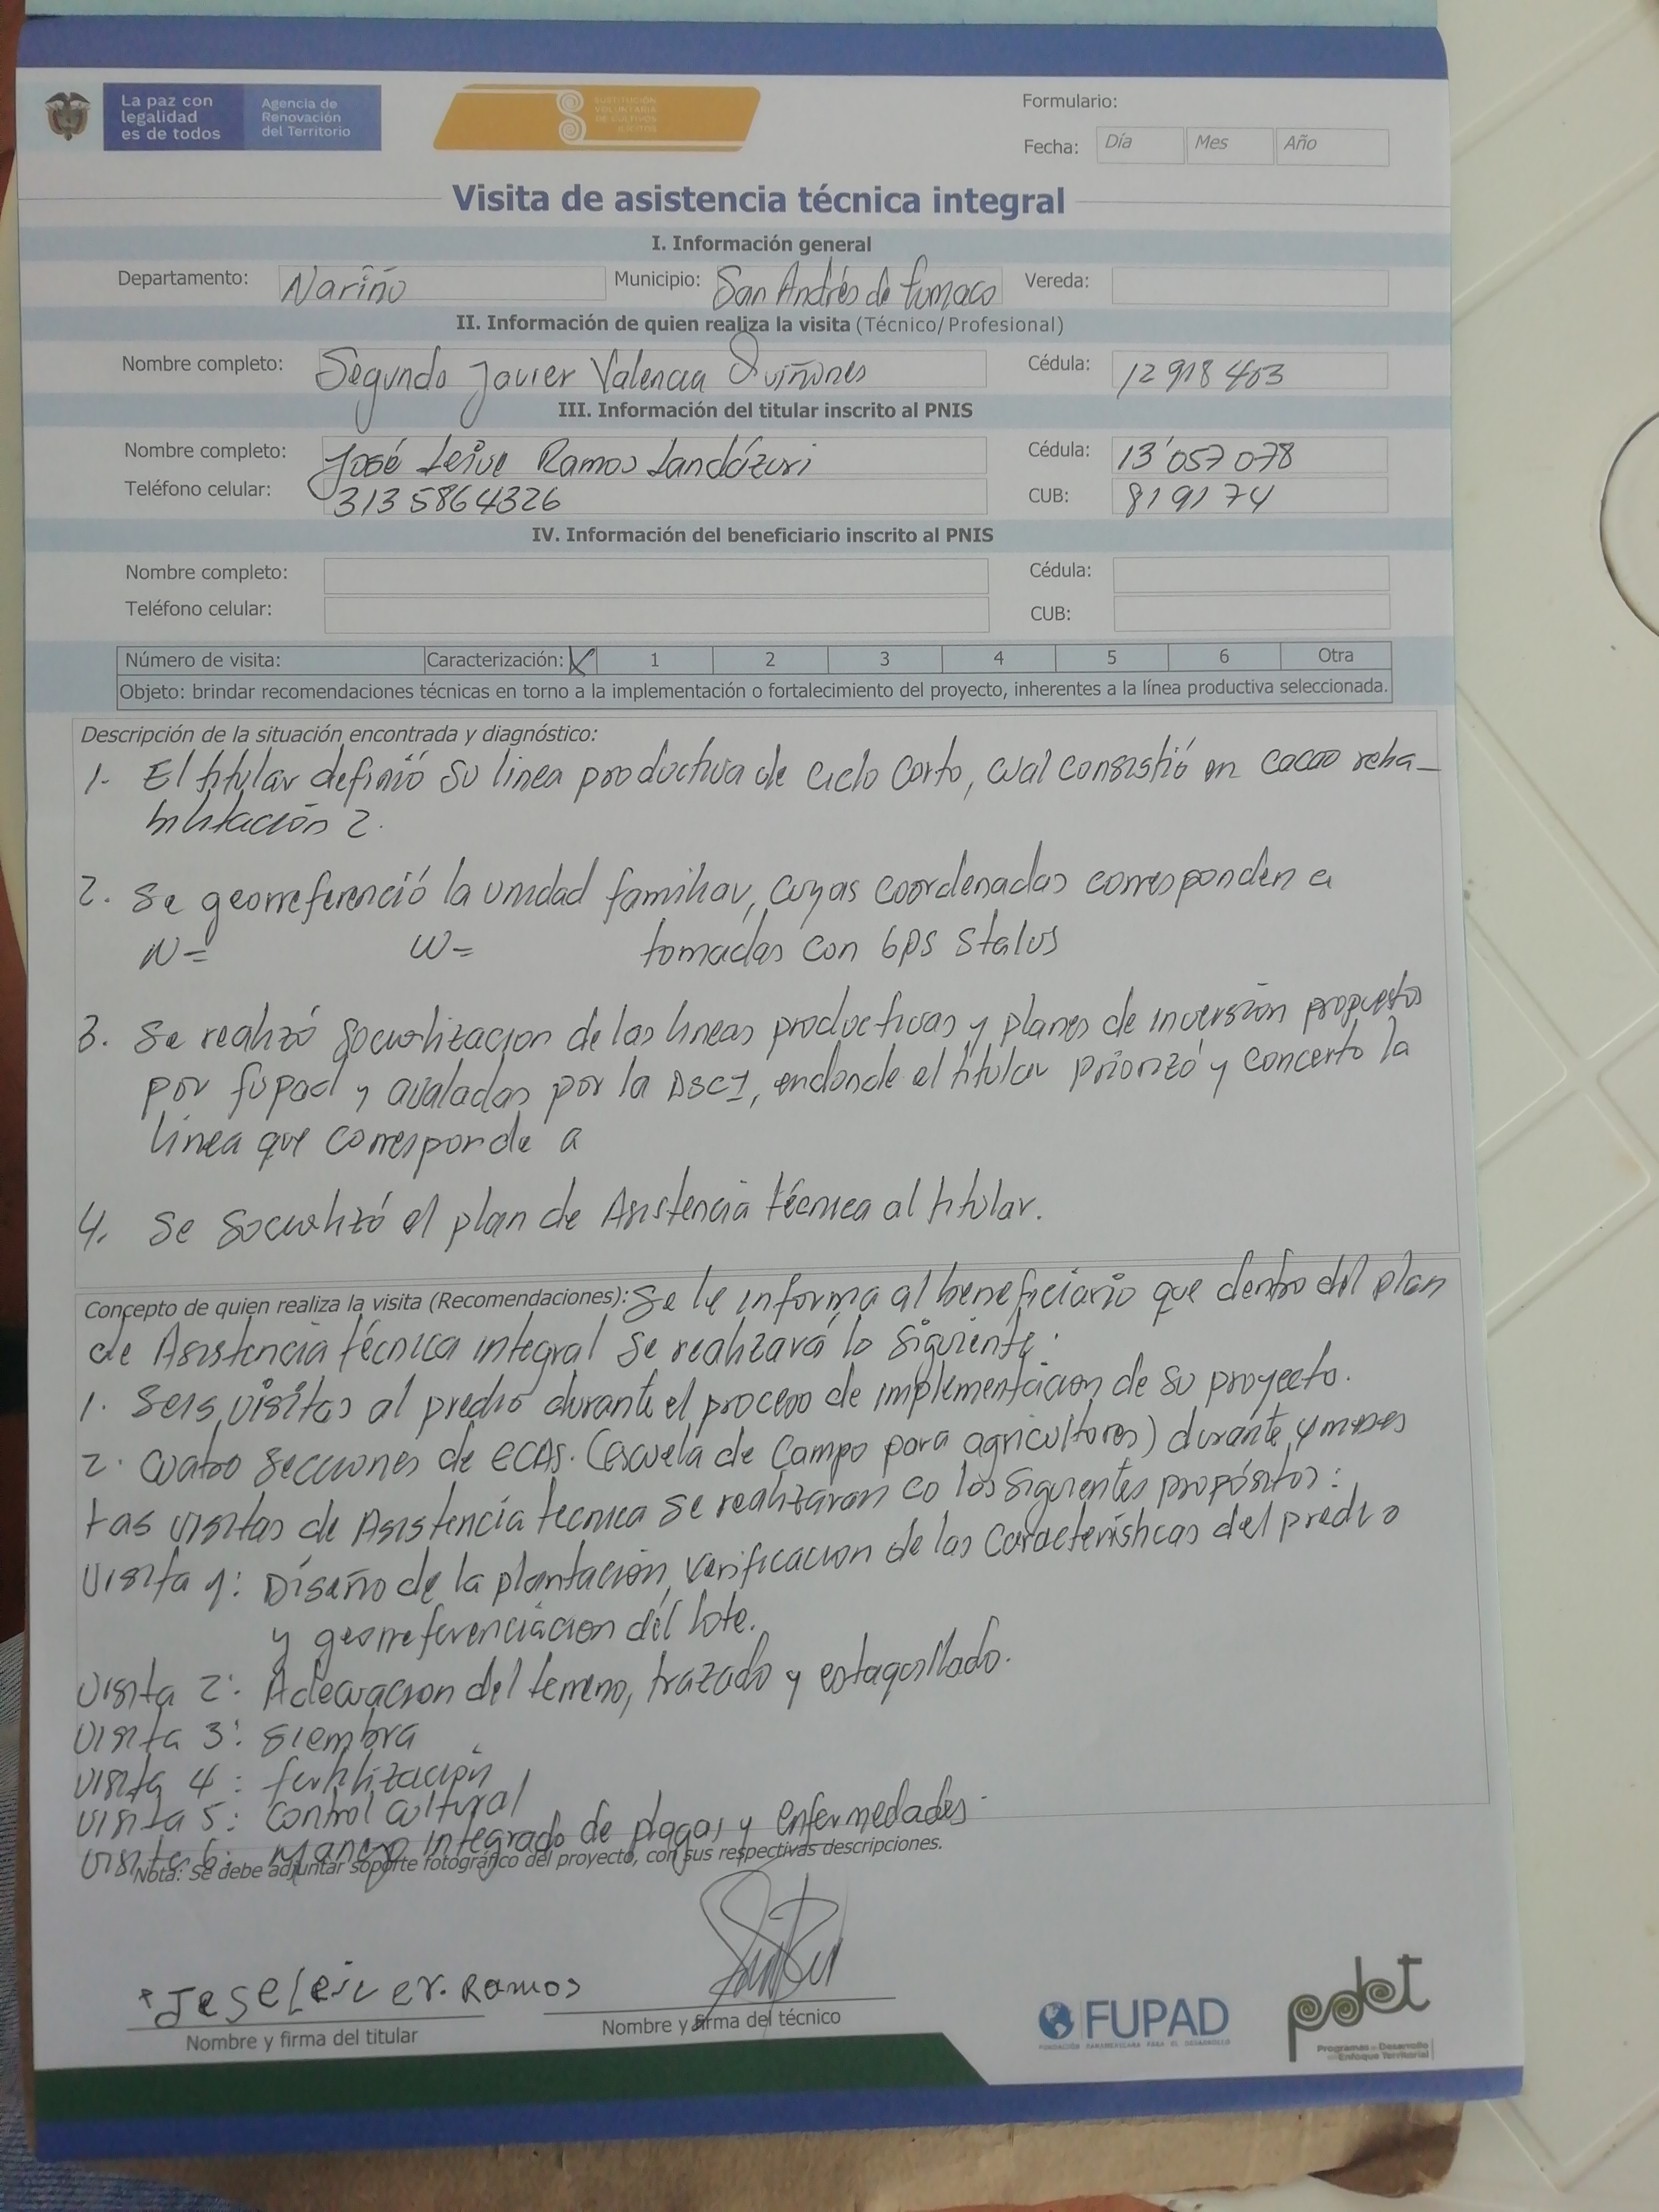 La paz con
legalidad
es de todos
Agencia de
Renovación
del Territorio
SUSTITUCIÓN
VOLUNTARIA
DE CULTIVOS
ILÍCITOS
Formulario:
Fecha: Día Mes Año
Visita de asistencia técnica integral
I. Información general
Departamento: Nariño Municipio: San Andrés de tumaco Vereda:
II. Información de quien realiza la visita (Técnico/Profesional)
Nombre completo: Segundo Javier Valencia Quiñones Cédula: 12 918 403
III. Información del titular inscrito al PNIS
Nombre completo: José Leive Ramos Landázuri Cédula: 13'057 078
Teléfono celular: 3135864326 CUB: 819174
IV. Información del beneficiario inscrito al PNIS
Nombre completo: Cédula:
Teléfono celular: CUB:
Número de visita: Caracterización: X 1 2 3 4 5 6 Otra
Objeto: brindar recomendaciones técnicas en torno a la implementación o fortalecimiento del proyecto, inherentes a la línea productiva seleccionada.
Descripción de la situación encontrada y diagnóstico:
1. El titular definió su linea productiva de ciclo corto, cual consistió en cacao reha-
bilitación 2.
2. Se georreferenció la unidad familiar, cuyas coordenadas corresponden a
N= W= tomadas con GPS Stalus
3. Se realizó socializacion de las lineas productivas y planes de inversión propuestos
por fupad y avaladas por la DSCI, endonde el titular priorizó y concerto la
linea que corresponde a
4. Se socializó el plan de Asistencia técnica al titular.
Concepto de quien realiza la visita (Recomendaciones): Se le informa al beneficiario que dentro del plan
de Asistencia técnica integral se realizará lo siguiente:
1. Seis visitas al predio durante el proceso de implementacion de su proyecto.
2. Cuatro secciones de ECAS. (escuela de Campo para agricultores) durante 4 meses
Las visitas de Asistencia tecnica se realizaran co los siguientes propósitos:
Visita 1: Diseño de la plantación, verificacion de las caracteristicas del predio
y georreferenciacion del lote.
Visita 2: Adecuacion del terreno, trazado y estaquillado.
Visita 3: Siembra
Visita 4: fertilización
Visita 5: Control cultural
Visita 6: Manejo integrado de plagas y enfermedades.
Nota: Se debe adjuntar soporte fotográfico del proyecto, con sus respectivas descripciones.
Jose Leiver. Ramos
Nombre y firma del titular
Nombre y firma del técnico
FUPAD
FUNDACIÓN PANAMERICANA PARA EL DESARROLLO
pdet
Programas de Desarrollo
con Enfoque Territorial